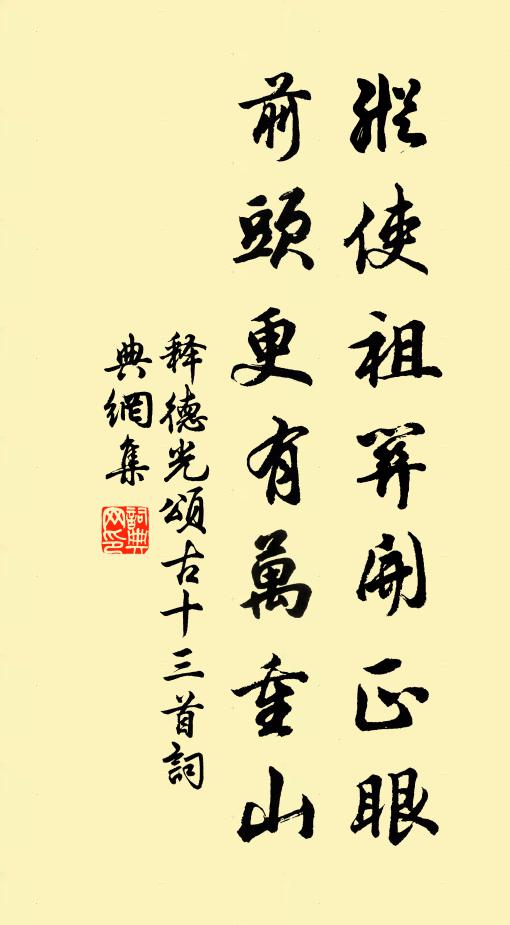 縱使祖關開正眼
前頭更有萬重山
释德光頌古十三首詞
典網集
詞典
网印